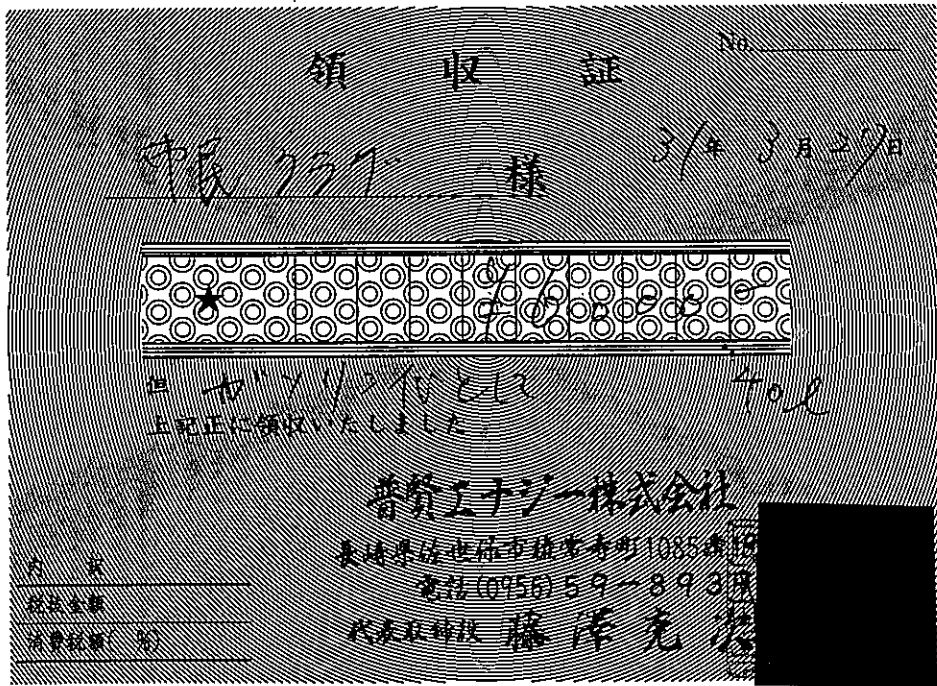 No.
領収証
市民クラブ 様 31年3月29日
★ ¥6000-
但 ガソリン代として 40ℓ
上記正に領収いたしました
普賢エナジー株式会社
長崎県佐世保市 町1085
電話(0956)59-893
代表取締役 藤澤
内訳
税抜金額
消費税額( %)